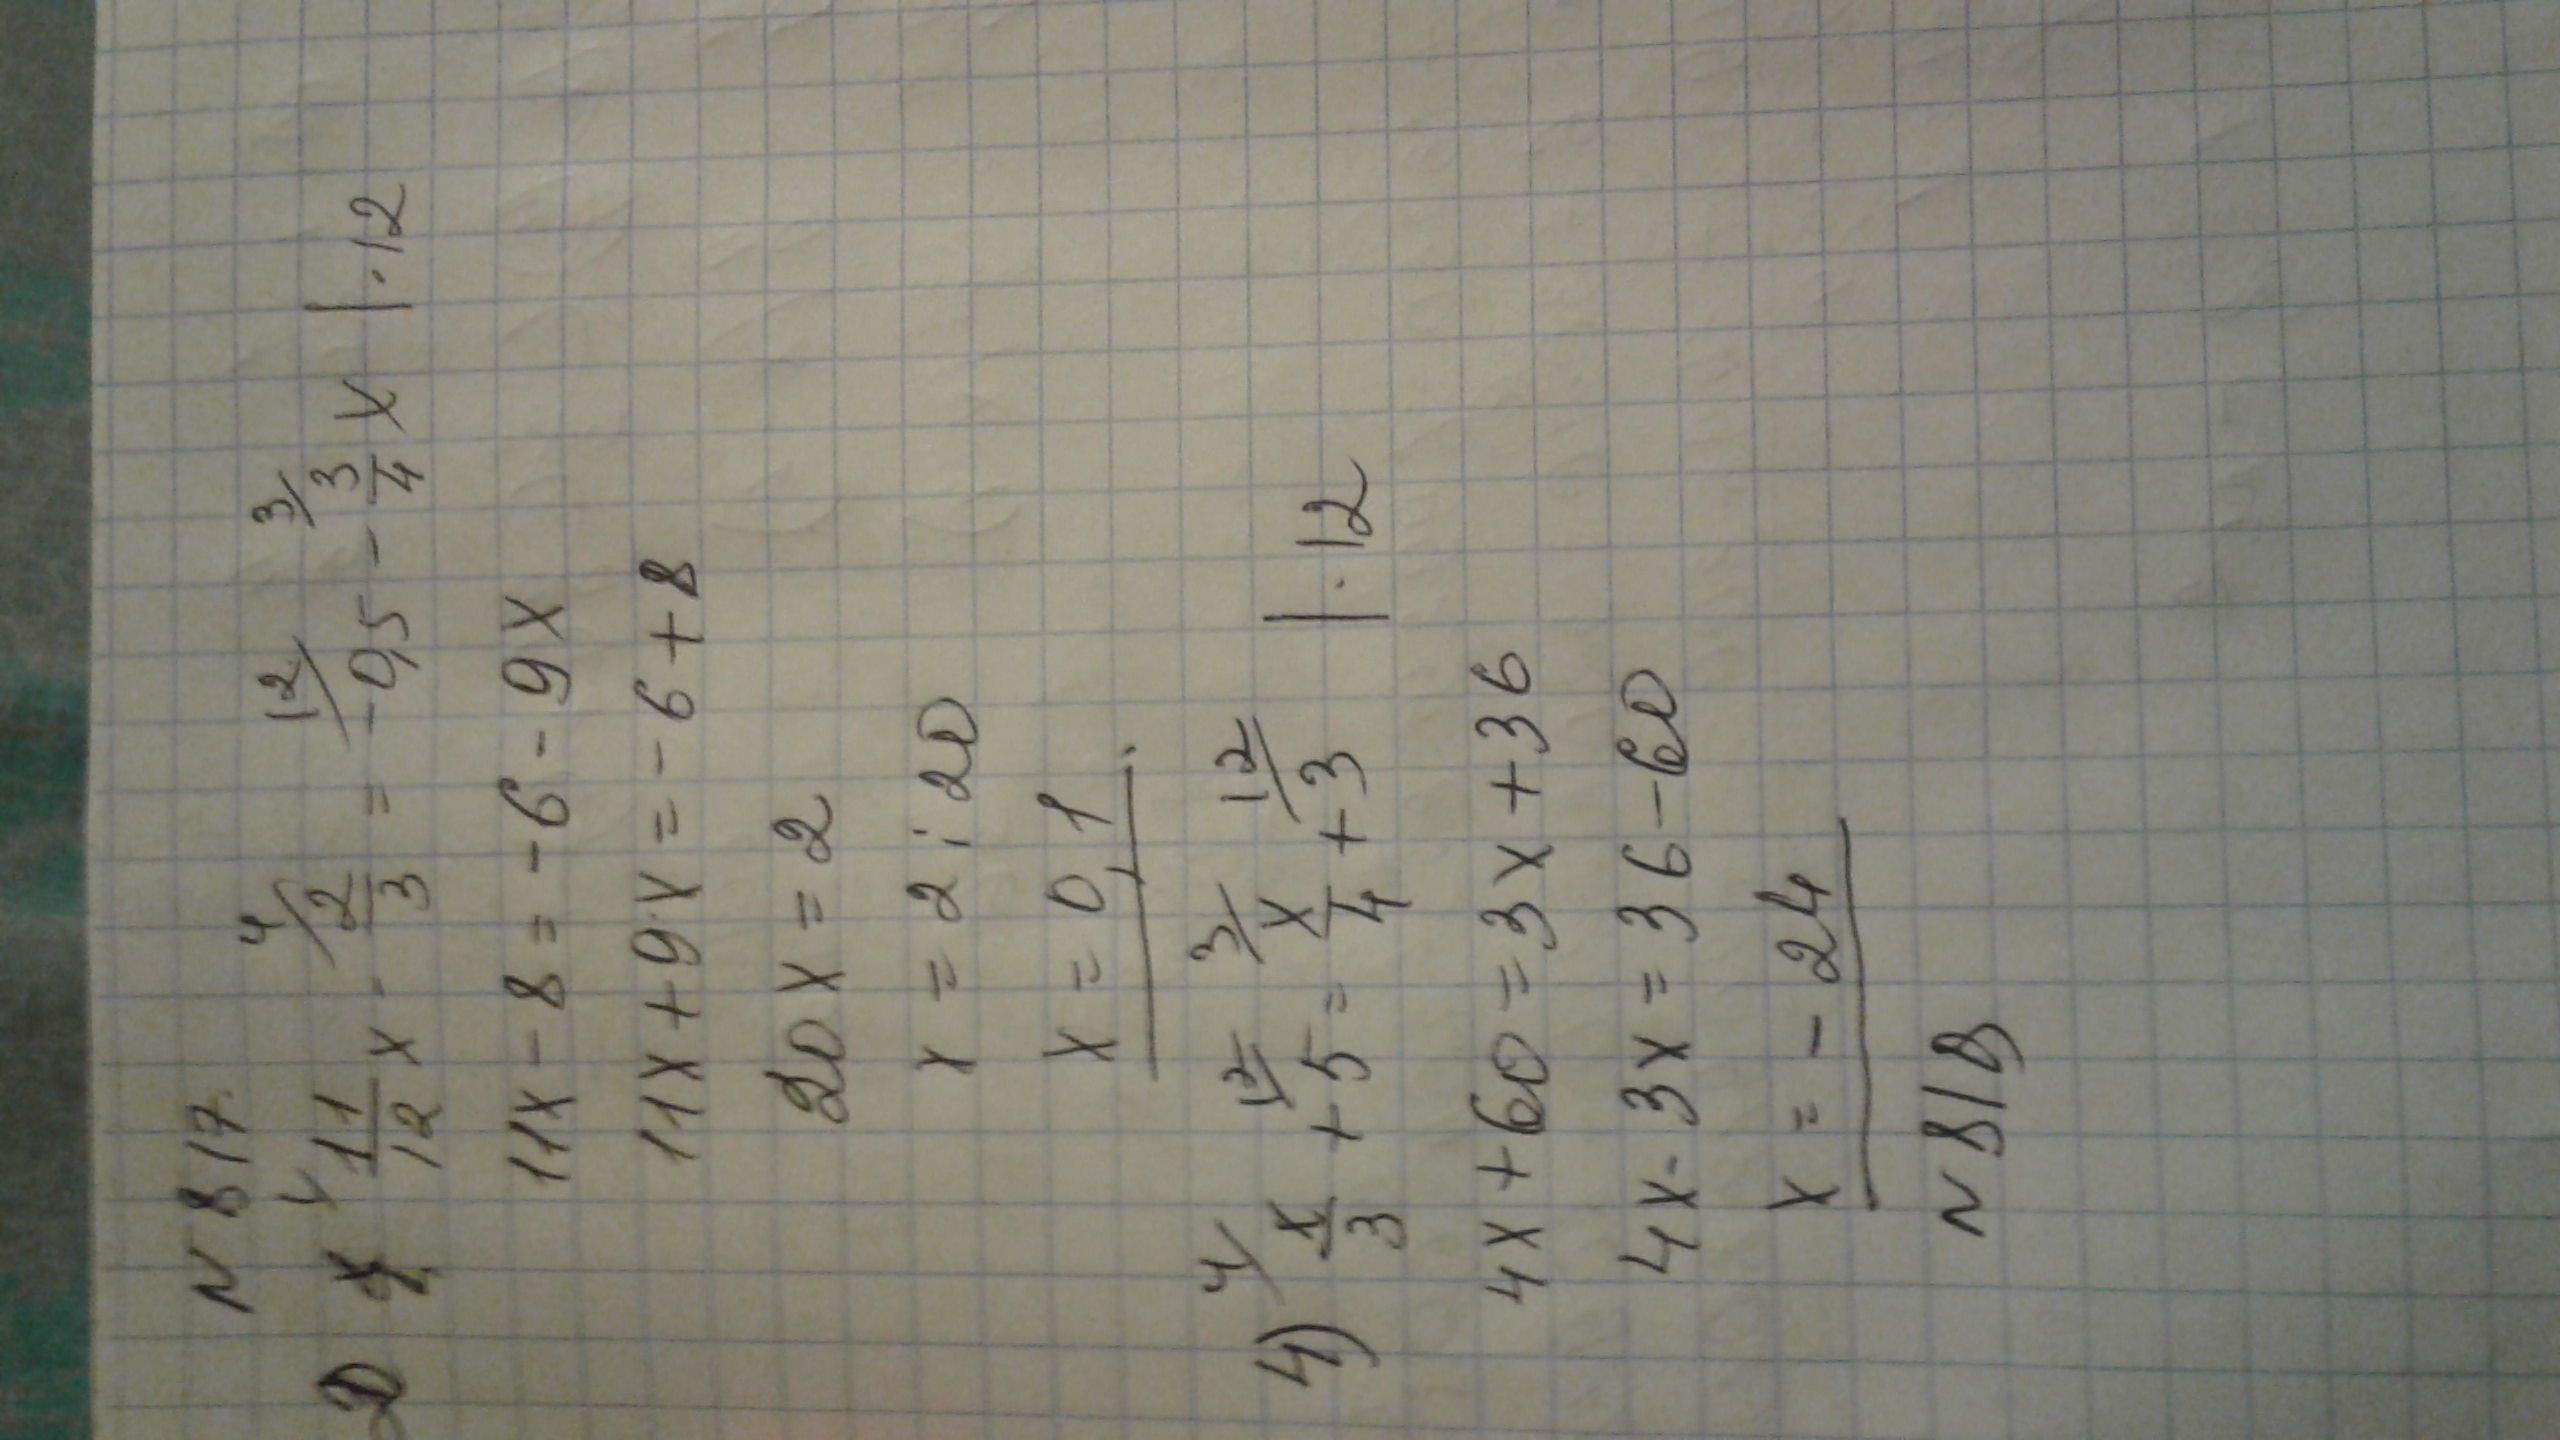 N 817.
2) 11/12 x - 2/3 = -0,5 - 3/4 x | · 12
11x - 8 = -6 - 9x
11x + 9x = -6 + 8
20x = 2
x = 2 : 20
x = 0,1
4) x/3 + 5 = x/4 + 3 | · 12
4x + 60 = 3x + 36
4x - 3x = 36 - 60
x = -24
N 818